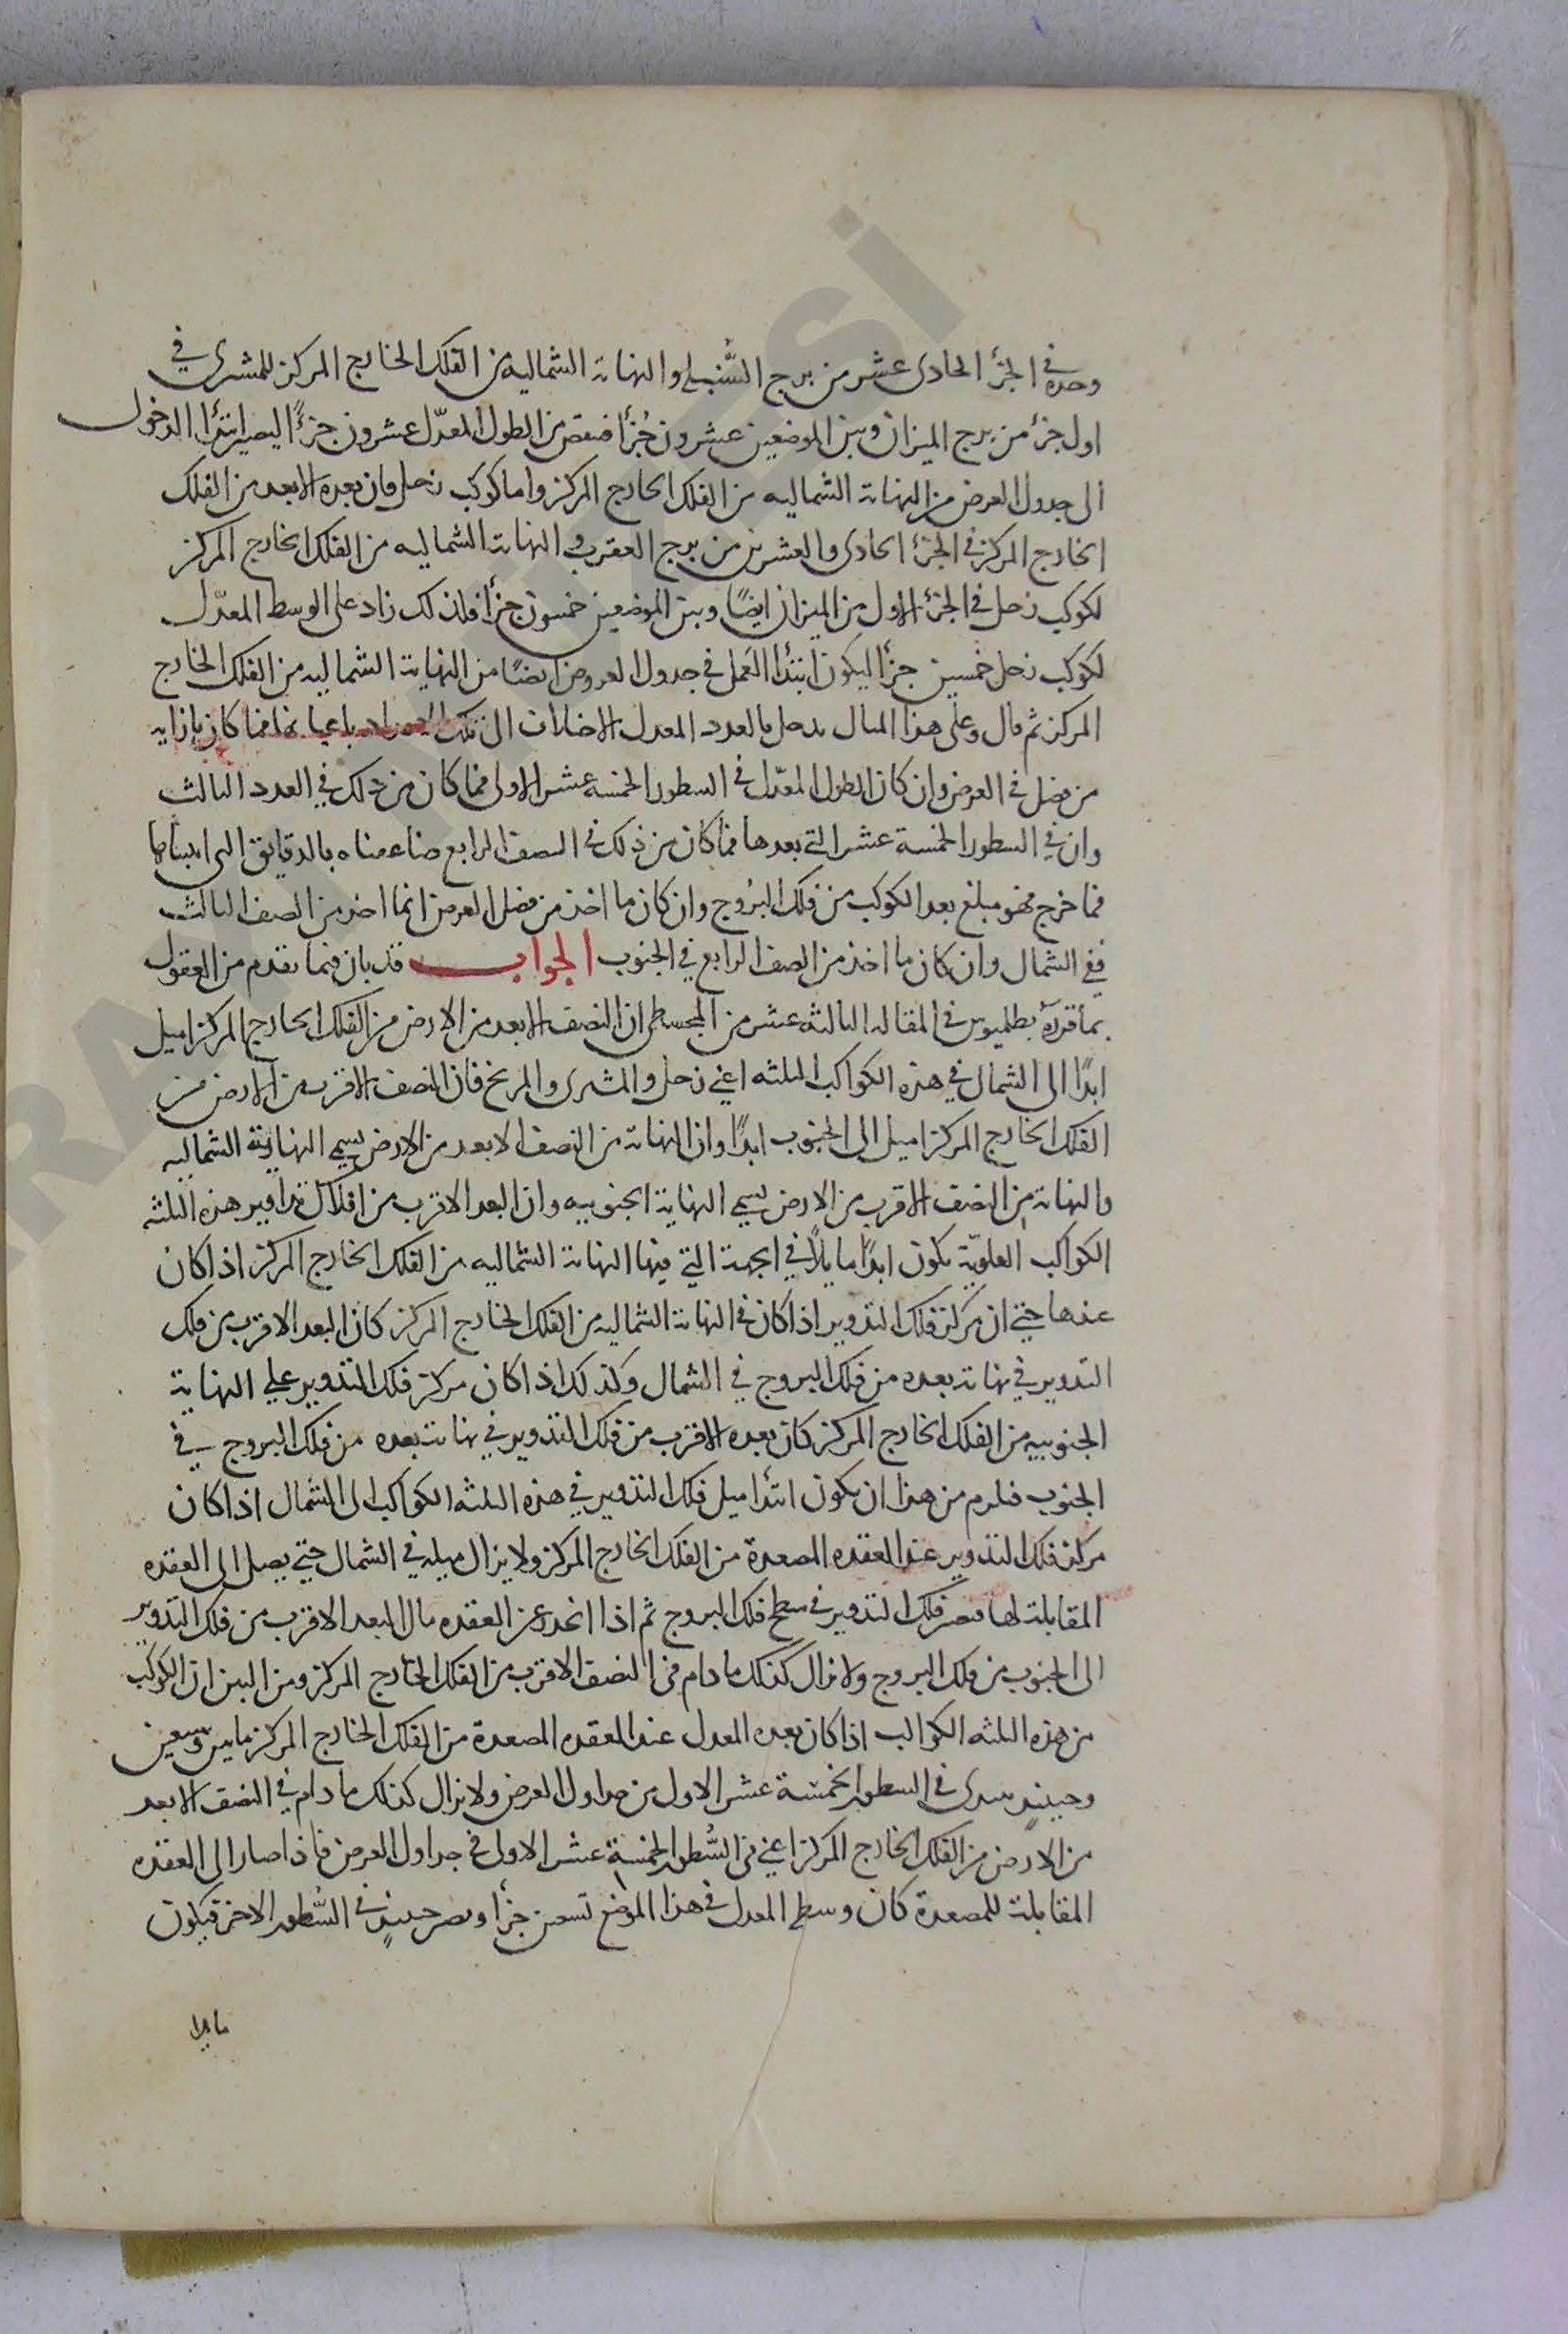 وحده في الجزأ الحادى عشر من برج السُّنبله والنهاية الشماليه من الفلك الخارج المركز للمشترى في
اول جزء من برج الميزان وبين الموضعين عشرون جُزأ فنقص من الطول المعدّل عشرون جزءًا ليصير ابتدا الدخول
الى جدول العرض من النهاية الشماليه من الفلك الخارج المركز واما كوكب زحل فان بعده الابعد من الفلك
الخارج المركز في الجزء الحادى والعشرين من برج العقرب و النهاية الشماليه من الفلك الخارج المركز
لكوكب زحل في الجزء الاول من الميزان ايضًا وبين الموضعين خمسون جزأ فلذلك زاد على الوسط المعدّل
لكوكب زحل خمسين جزأ ليكون ابتدأ العمل في جدول العروض ايضًا من النهاية الشماليه من الفلك الخارج
المركز ثم قال وعلى هذا المثال يدخل بالعدد المعدل الاختلاف الى تلك باعيانها فما كان بازايه
من فضل في العرض وان كان الطول المعدّل في السطور الخمسه عشر الاولى فما كان من ذلك في العدد الثالث
وان في السطور الخمسة عشر التي بعدها فما كان من ذلك في الصف الرابع ضاعفناه بالدقايق التى اثبتناها
فما خرج فهو مبلغ بعد الكوكب من فلك البُروج وان كان ما اخذ من فضل العرض انما اخذ من الصف الثالث
ففي الشمال وان كان ما اخذ من الصف الرابع في الجنوب الجواب قد بان فيما تقدم من القول
بما قرره بطلميوس في المقاله الثالثه عشر من المجسطى ان النصف الابعد من الارض من الفلك الخارج المركز اميل
ابدًا الى الشمال في هذه الكواكب الثلثه اعني زحل والمشترى والمريخ فان النصف الاقرب من الارض من
الفلك الخارج المركز اميل الى الجنوب ابدًا وان النهاية من النصف الابعد من الارض يسمي النهاية الشماليه
والنهاية من النصف الاقرب من الارض يسمي النهاية الجنوبيه وان البعد الاقرب من افلاك تداوير هذه الثلثه
الكواكب العلويّة يكون ابدًا مايلًا في الجهة التي فيها النهاية الشماليه من الفلك الخارج المركز اذا كان
عندها حتي ان مركز فلك التدوير اذا كان في النهاية الشماليه من الفلك الخارج المركز كان البعد الاقرب من فلك
التدوير في نهاية بعده من فلك البروج في الشمال وكذلك اذا كان مركز فلك التدوير علي النهاية
الجنوبيه من الفلك الخارج المركز كان بعده الاقرب من فلك التدوير في نهاية بعده من فلك البروج في
الجنوب فيلزم من هذا ان يكون ابتدأ ميل فلك التدوير في هذه الثلثه الكواكب الى الشمال اذا كان
مركز فلك التدوير عند العقده المصعدة من الفلك الخارج المركز ولا يزال ميله في الشمال حتي يصل الى العقده
المقابلة لها فيصير فلك التدوير في سطح فلك البروج ثم اذا انحدر عن العقده مال البعد الاقرب من فلك التدوير
الى الجنوب من فلك البروج ولا يزال كذلك ما دام في النصف الاقرب من الفلك الخارج المركز ومن البين ان الكوكب
من هذه الثلثه الكواكب اذا كان بعده المعدل عند العقده المصعدة من الفلك الخارج المركز مايتين وسبعين
وحينيذٍ يبتدى في السطور الخمسة عشر الاول من جداول العرض ولا يزال كذلك ما دام في النصف الابعد
من الارض من الفلك الخارج المركز اعني في السُّطور الخمسة عشر الاول في جداول العرض فاذا صار الى العقده
المقابلة للمصعدة كان وسطه المعدل في هذا الموضع تسعين جزأ ويصير حينيذٍ في السُّطور الاخر فيكون